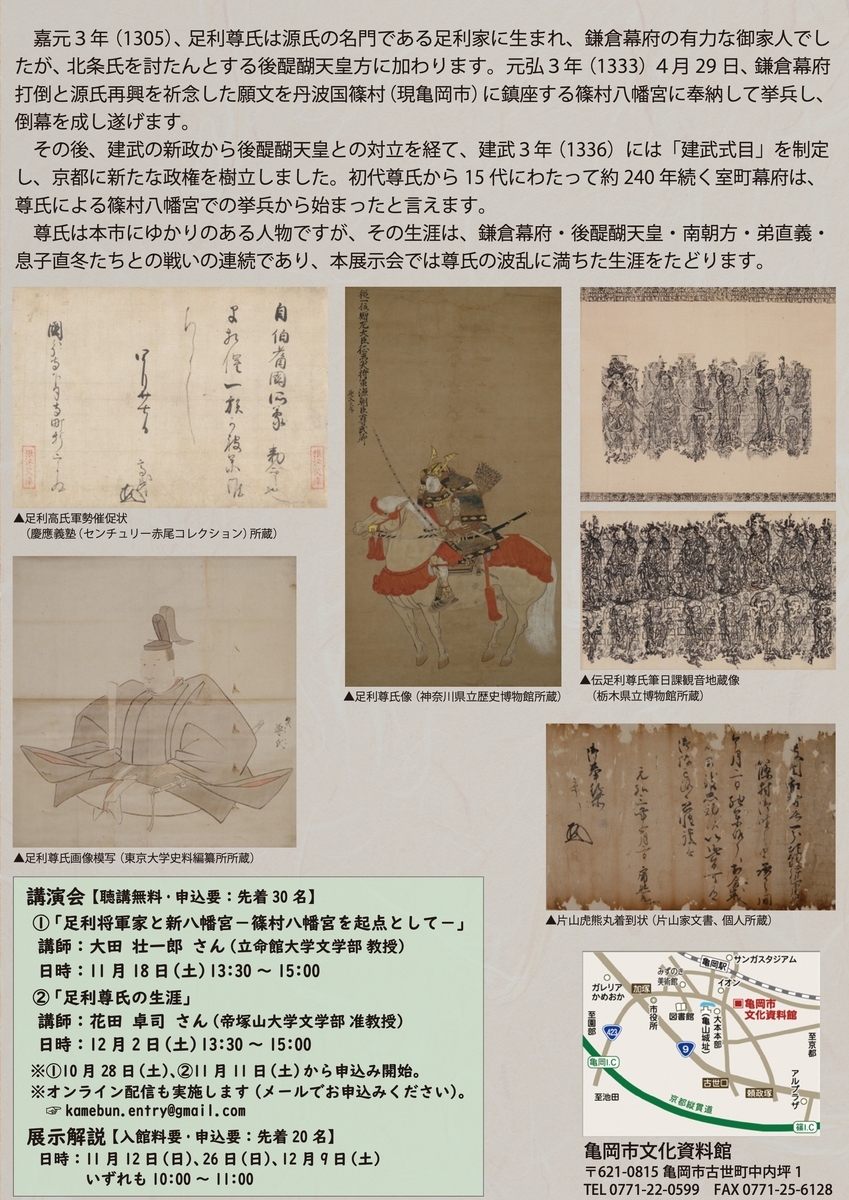 嘉元３年（1305）、足利尊氏は源氏の名門である足利家に生まれ、鎌倉幕府の有力な御家人でし
たが、北条氏を討たんとする後醍醐天皇方に加わります。元弘３年（1333）４月29日、鎌倉幕府
打倒と源氏再興を祈念した願文を丹波国篠村（現亀岡市）に鎮座する篠村八幡宮に奉納して挙兵し、
倒幕を成し遂げます。
その後、建武の新政から後醍醐天皇との対立を経て、建武３年（1336）には「建武式目」を制定
し、京都に新たな政権を樹立しました。初代尊氏から15代にわたって約240年続く室町幕府は、
尊氏による篠村八幡宮での挙兵から始まったと言えます。
尊氏は本市にゆかりのある人物ですが、その生涯は、鎌倉幕府・後醍醐天皇・南朝方・弟直義・
息子直冬たちとの戦いの連続であり、本展示会では尊氏の波乱に満ちた生涯をたどります。
▲足利高氏軍勢催促状
（慶應義塾（センチュリー赤尾コレクション）所蔵）
▲足利尊氏像（神奈川県立歴史博物館所蔵）
▲伝足利尊氏筆日課観音地蔵像
（栃木県立博物館所蔵）
▲足利尊氏画像模写（東京大学史料編纂所所蔵）
▲片山虎熊丸着到状（片山家文書、個人所蔵）
講演会【聴講無料・申込要：先着30名】
①「足利将軍家と新八幡宮－篠村八幡宮を起点として－」
講師：大田 壮一郎 さん（立命館大学文学部 教授）
日時：11月18日（土）13:30～15:00
②「足利尊氏の生涯」
講師：花田 卓司 さん（帝塚山大学文学部 准教授）
日時：12月2日（土）13:30～15:00
※①10月28日（土）、②11月11日（土）から申込み開始。
※オンライン配信も実施します（メールでお申込みください）。
☞ kamebun.entry@gmail.com
展示解説【入館料要・申込要：先着20名】
日時：11月12日（日）、26日（日）、12月9日（土）
いずれも10:00～11:00
亀岡駅
サンガスタジアム
みずのき
美術館
イオン
ガレリア
かめおか
加塚
亀岡市
文化資料館
市役所
図書館
（亀山城址）
大本本部
至園部
423
9
至京都
亀岡I.C
古世口
頼政塚
アルプラザ
至池田
京都縦貫道
篠I.C
亀岡市文化資料館
〒621-0815 亀岡市古世町中内坪１
TEL 0771-22-0599 FAX 0771-25-6128